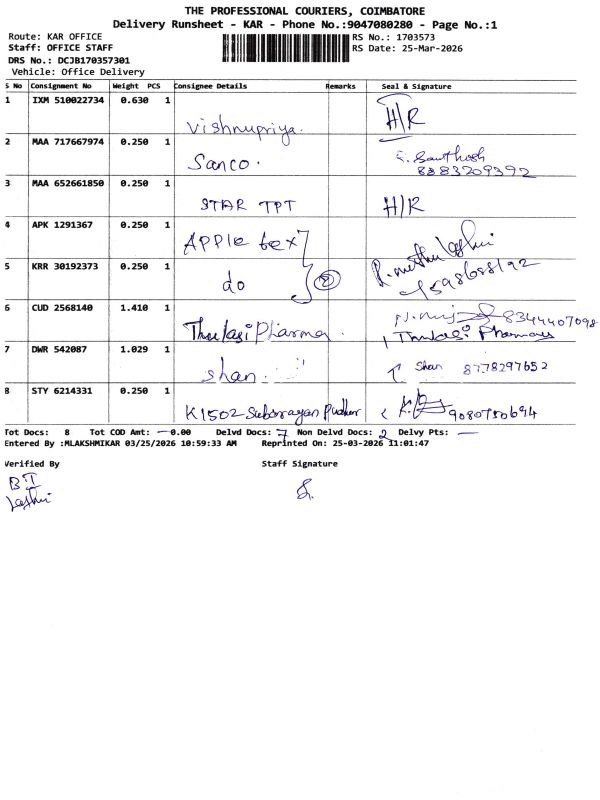 THE PROFESSIONAL COURIERS, COIMBATORE
Delivery Runsheet - KAR - Phone No.:9047080280 - Page No.:1
Route: KAR OFFICE
RS No.: 1703573
Staff: OFFICE STAFF
RS Date: 25-Mar-2026
DRS No.: DCJB170357301
Vehicle: Office Delivery
S No Consignment No Weight PCS Consignee Details Remarks Seal & Signature
1 IXM 510022734 0.630 1 Vishnupriya. H/R
2 MAA 717667974 0.250 1 Sanco. S. Santhosh
8883209392
3 MAA 652661850 0.250 1 STAR TPT H/R
4 APK 1291367 0.250 1 Apple tex
5 KRR 30192373 0.250 1 do 2
6 CUD 2568140 1.410 1 Thulasi Pharma. 8344407098
Thulasi Pharmacy
7 DWR 542087 1.029 1 Shan. Shan 8778297652
8 STY 6214331 0.250 1 K1502 Subbrayan Pudhur
Tot Docs: 8 Tot COD Amt: 0.00 Delvd Docs: 7 Non Delvd Docs: 2 Delvy Pts:
Entered By :MLAKSHMIKAR 03/25/2026 10:59:33 AM Reprinted On: 25-03-2026 11:01:47
Verified By Staff Signature